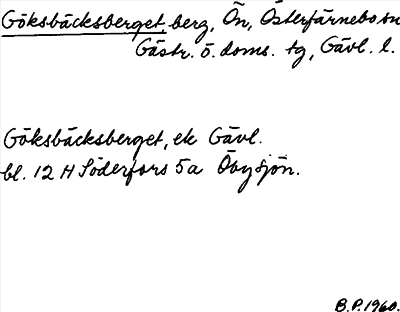 Göksbäcksberget, berg, Ön, Österfärnebo sn
Gästr. ö. doms. tg, Gävl. l.
Göksbäcksberget, ek Gävl.
bl. 12 H Söderfors 5a Öbysjön.
B.P. 1960.